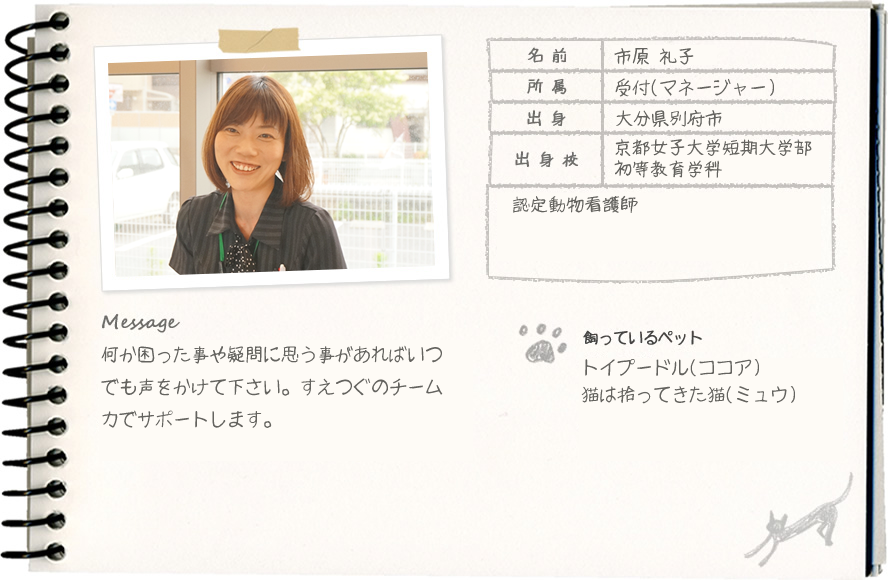 名前 市原 礼子
所属 受付(マネージャー)
出身 大分県別府市
出身校 京都女子大学短期大学部
初等教育学科
認定動物看護師
Message
何か困った事や疑問に思う事があればいつ
でも声をかけて下さい。すえつぐのチーム
力でサポートします。
飼っているペット
トイプードル(ココア)
猫は拾ってきた猫(ミュウ)